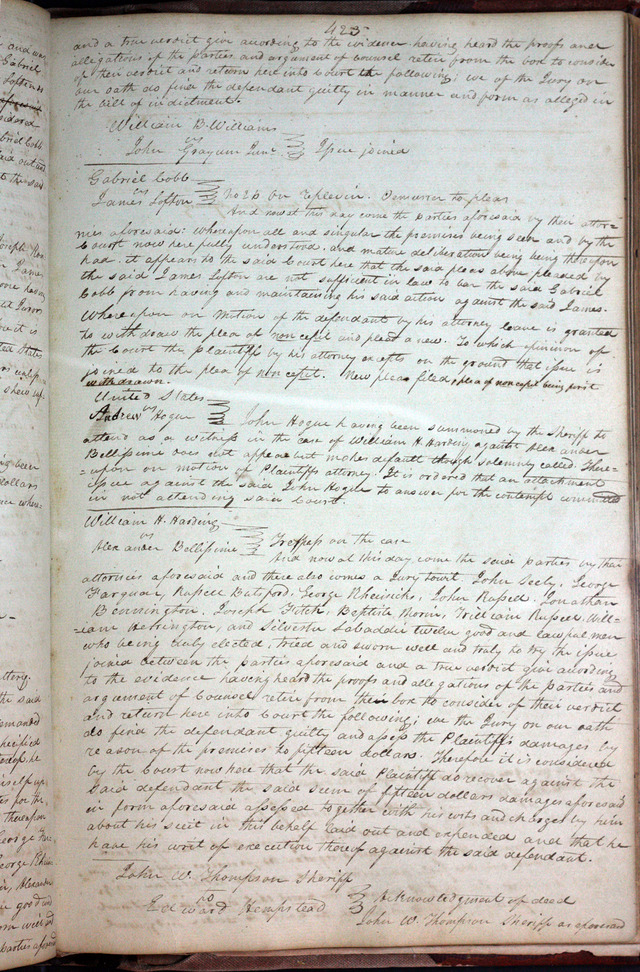 423
and a true verdict give according to the evidence having heard the proofs and
allegations of the parties and argument of counsel retire from the box to consider
of their verdict and return here into Court the following; we of the Jury on
our oath do find the defendant guilty in manner and form as alleged in
the bill of indictment.
William B. Williams
vs
John Grayum Junr. Issue joined
Gabriel Cobb
vs
James Lofton No 26 on replevin. Demurrer to pleas
And now at this day come the parties aforesaid by their attor=
nies aforesaid: whereupon all and singular the premises being seen and by the
Court now here fully understood. and mature deliberation being being thereupon
had. it appears to the said Court here that the said pleas above pleaded by
the said James Lofton are not sufficient in law to bar the said Gabriel
Cobb from having and maintaining his said action against the said James.
Whereupon on motion of the defendant by his attorney leave is granted
to withdraw the plea of non cepit and plead a new. To which opinion of
the Court the plaintiff by his attorney excepts on the ground that issue is
joined to the plea of non cepit. New pleas filed, plea of non cepit being first
withdrawn.
United States
vs
Andrew Hogue John Hogue having been summoned by the sheriff to
attend as a witness in the case of William H. Harding against Alexander
Bellissime does not appear but makes default though solemnly called. There=
=upon on motion of Plaintiffs attorney. It is ordered that an attachment
issue against the said John Hogue to answer for the contempt committed
in not attending said Court.
William H. Harding
vs
Alexander Bellissime Trespass on the case
And now at this day, come the said parties by their
attornies aforesaid and there also comes a Jury towit. John Seely, George
Farquar, Russell Butsford, George Rheinicks, John Russell. Jonathan
Bennington. Joseph Fitch, Baptiste Morin, William Russell, Will=
=iam Herington, and Silvestre Labaddie twelve good and lawful men
who being duly elected, tried and sworn well and truly to try the issue
joined between the parties aforesaid and a true verdict give according
to the evidence having heard the proofs and allegations of the parties and
argument of Counsel retire from their box to consider of their verdict
and return here into Court the following; we the Jury on our oath
do find the defendant guilty and assess the Plaintiffs damages by
reason of the premises to fifteen dollars. Therefore it is considered
by the Court now here that the said Plaintiff do recover against the
said defendant the said sum of fifteen dollars damages aforesaid
in form aforesaid assessed together with his costs and charges by him
about his suit in this behalf laid out and expended and that he
have his writ of execution thereof against the said defendant.
John W. Thompson Sheriff
to
Edward Hempstead Acknowledgment of deed
John W. Thompson Sheriff as aforesaid